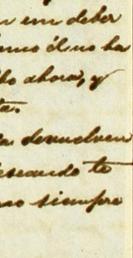 n em deber
emo él no ha
ho ahora, y
ta.
la devuelven
deseando te
mo siempre